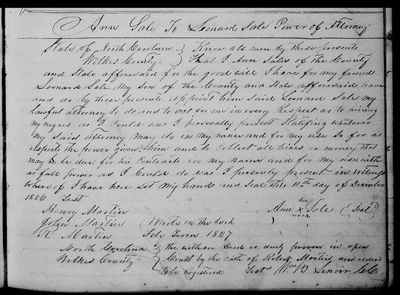 Ann Sale To Leonard Sale Power of Attorney
State of North Carolina } Know all men by these presents
Wilkes County } That I Ann Sales of the County
and State aforesaid for the good will I have for my friend
Leonard Sale my Son of the County and State aforesaid have
and do by these presents appoint him Said Leonard Sales my
lawful attorney to do and to act for me in every Respect as to hireing
my negros as I could was I personally present Ratifing whatever
my Said attorney may do in my name and for my use So far as
respects the power given him and to collect all hires or money that
may be due for his Contracts in my name and for my use with
as full power as I could do was I personly present in witness
whereof I have here Set my hand and Seal this day of December
1806 Test
Henry Martin her
Ann X Sale (Seal)
mark
Martin } Words on the back
R Martin Feb Term 1807
North Carolina } the within Deed is duly proven in open
Wilkes County } Court by the oath of Robert Martin and ordered
to be registered Test Wm B Lenoir CC